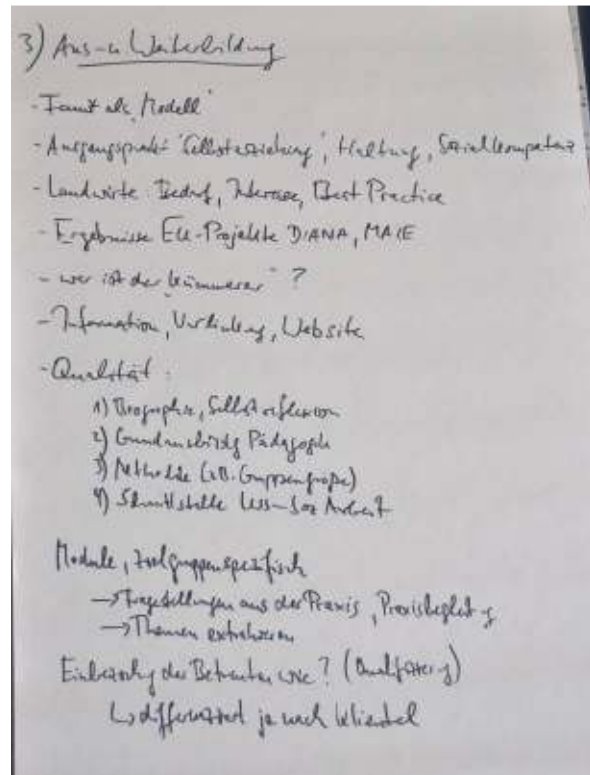 3) Aus- u Weiterbildung
- als "Modell"
- Ausgangspunkt "Selbsterziehung", Haltung, Sozialkompetenz
- Landwirte: Bedarf, Interesse, Best Practice
- Ergebnisse EU-Projekte DIANA, MAIE
- wer ist der "Kümmerer"?
- Information, Verlinkung, Website
- Qualität:
1) Biographie, Selbstreflexion
2) Grundausbildg Pädagogik
3) Methodik (z.B. Gruppengröße)
4) Schnittstelle - Soz Arbeit
Module, zielgruppenspezifisch
→ Fragestellungen aus der Praxis, Praxisbegleitg
→ Themen extrahieren
Einbeziehg der Betreuten wie? (Qualifizierg)
↳ differenziert je nach Klientel